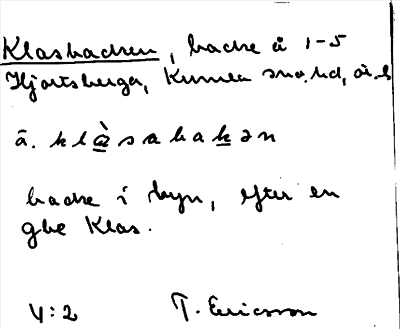 Klasbacken, backe å 1-5
Hjortsberga, Kumla sno. hd,
ä. klàsabakən
backe i byn, efter en
gbe Klas.
4:2 T. Ericsson